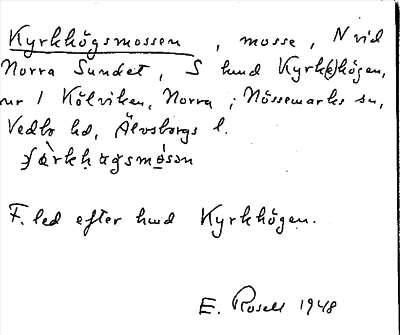 Kyrkhögsmossen, mosse, N vid
Norra Sundet, S hmd Kyrk(e)högen,
nr 1 Kölviken, Norra; Nössemarks sn,
Vedbo hd, Älvsborgs l.
F. led efter hmd Kyrkhögen.
E. Rosell 1948